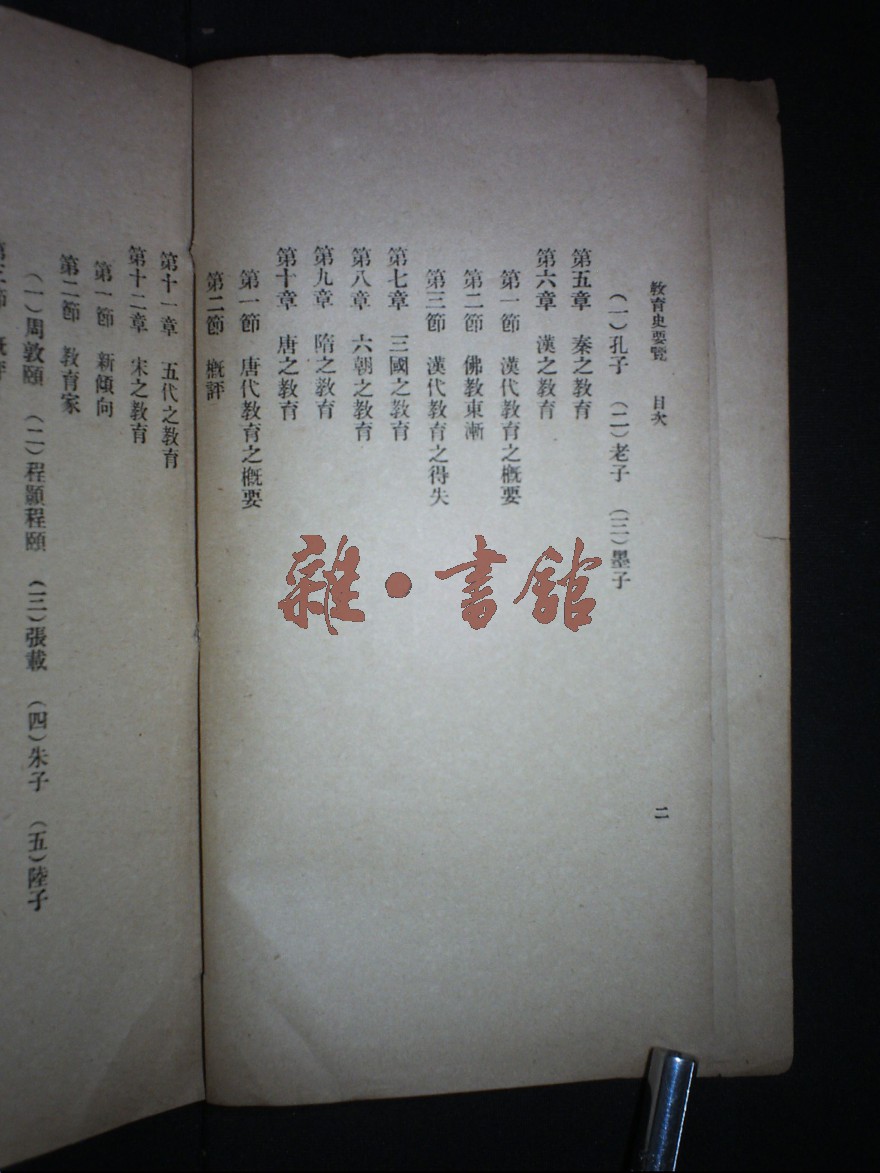 教育史要覽 目次 二
（一）孔子 （二）老子 （三）墨子
第五章 秦之教育
第六章 漢之教育
第一節 漢代教育之概要
第二節 佛教東漸
第三節 漢代教育之得失
第七章 三國之教育
第八章 六朝之教育
第九章 隋之教育
第十章 唐之教育
第一節 唐代教育之概要
第二節 概評
第十一章 五代之教育
第十二章 宋之教育
第一節 新傾向
第二節 教育家
（一）周敦頤 （二）程顥程頤 （三）張載 （四）朱子 （五）陸子
第三節 概評
雜·書館